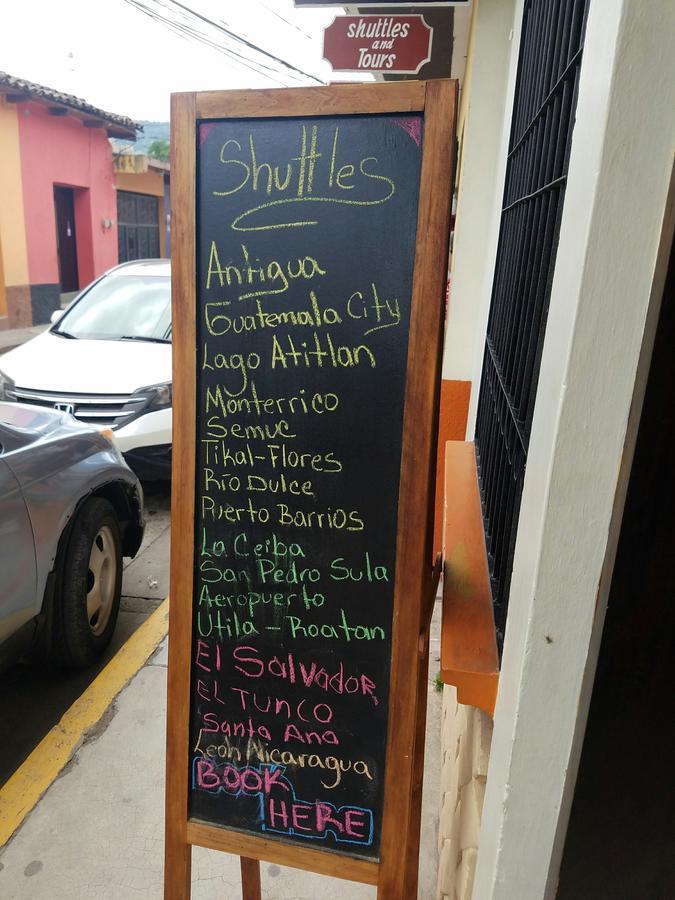 shuttles
and
Tours
Shuttles
Antigua
Guatemala City
Lago Atitlan
Monterrico
Semuc
Tikal-Flores
Río Dulce
Puerto Barrios
La Ceiba
San Pedro Sula
Aeropuerto
Utila - Roatan
El Salvador
EL TUNCO
Santa Ana
León Nicaragua
BOOK
HERE